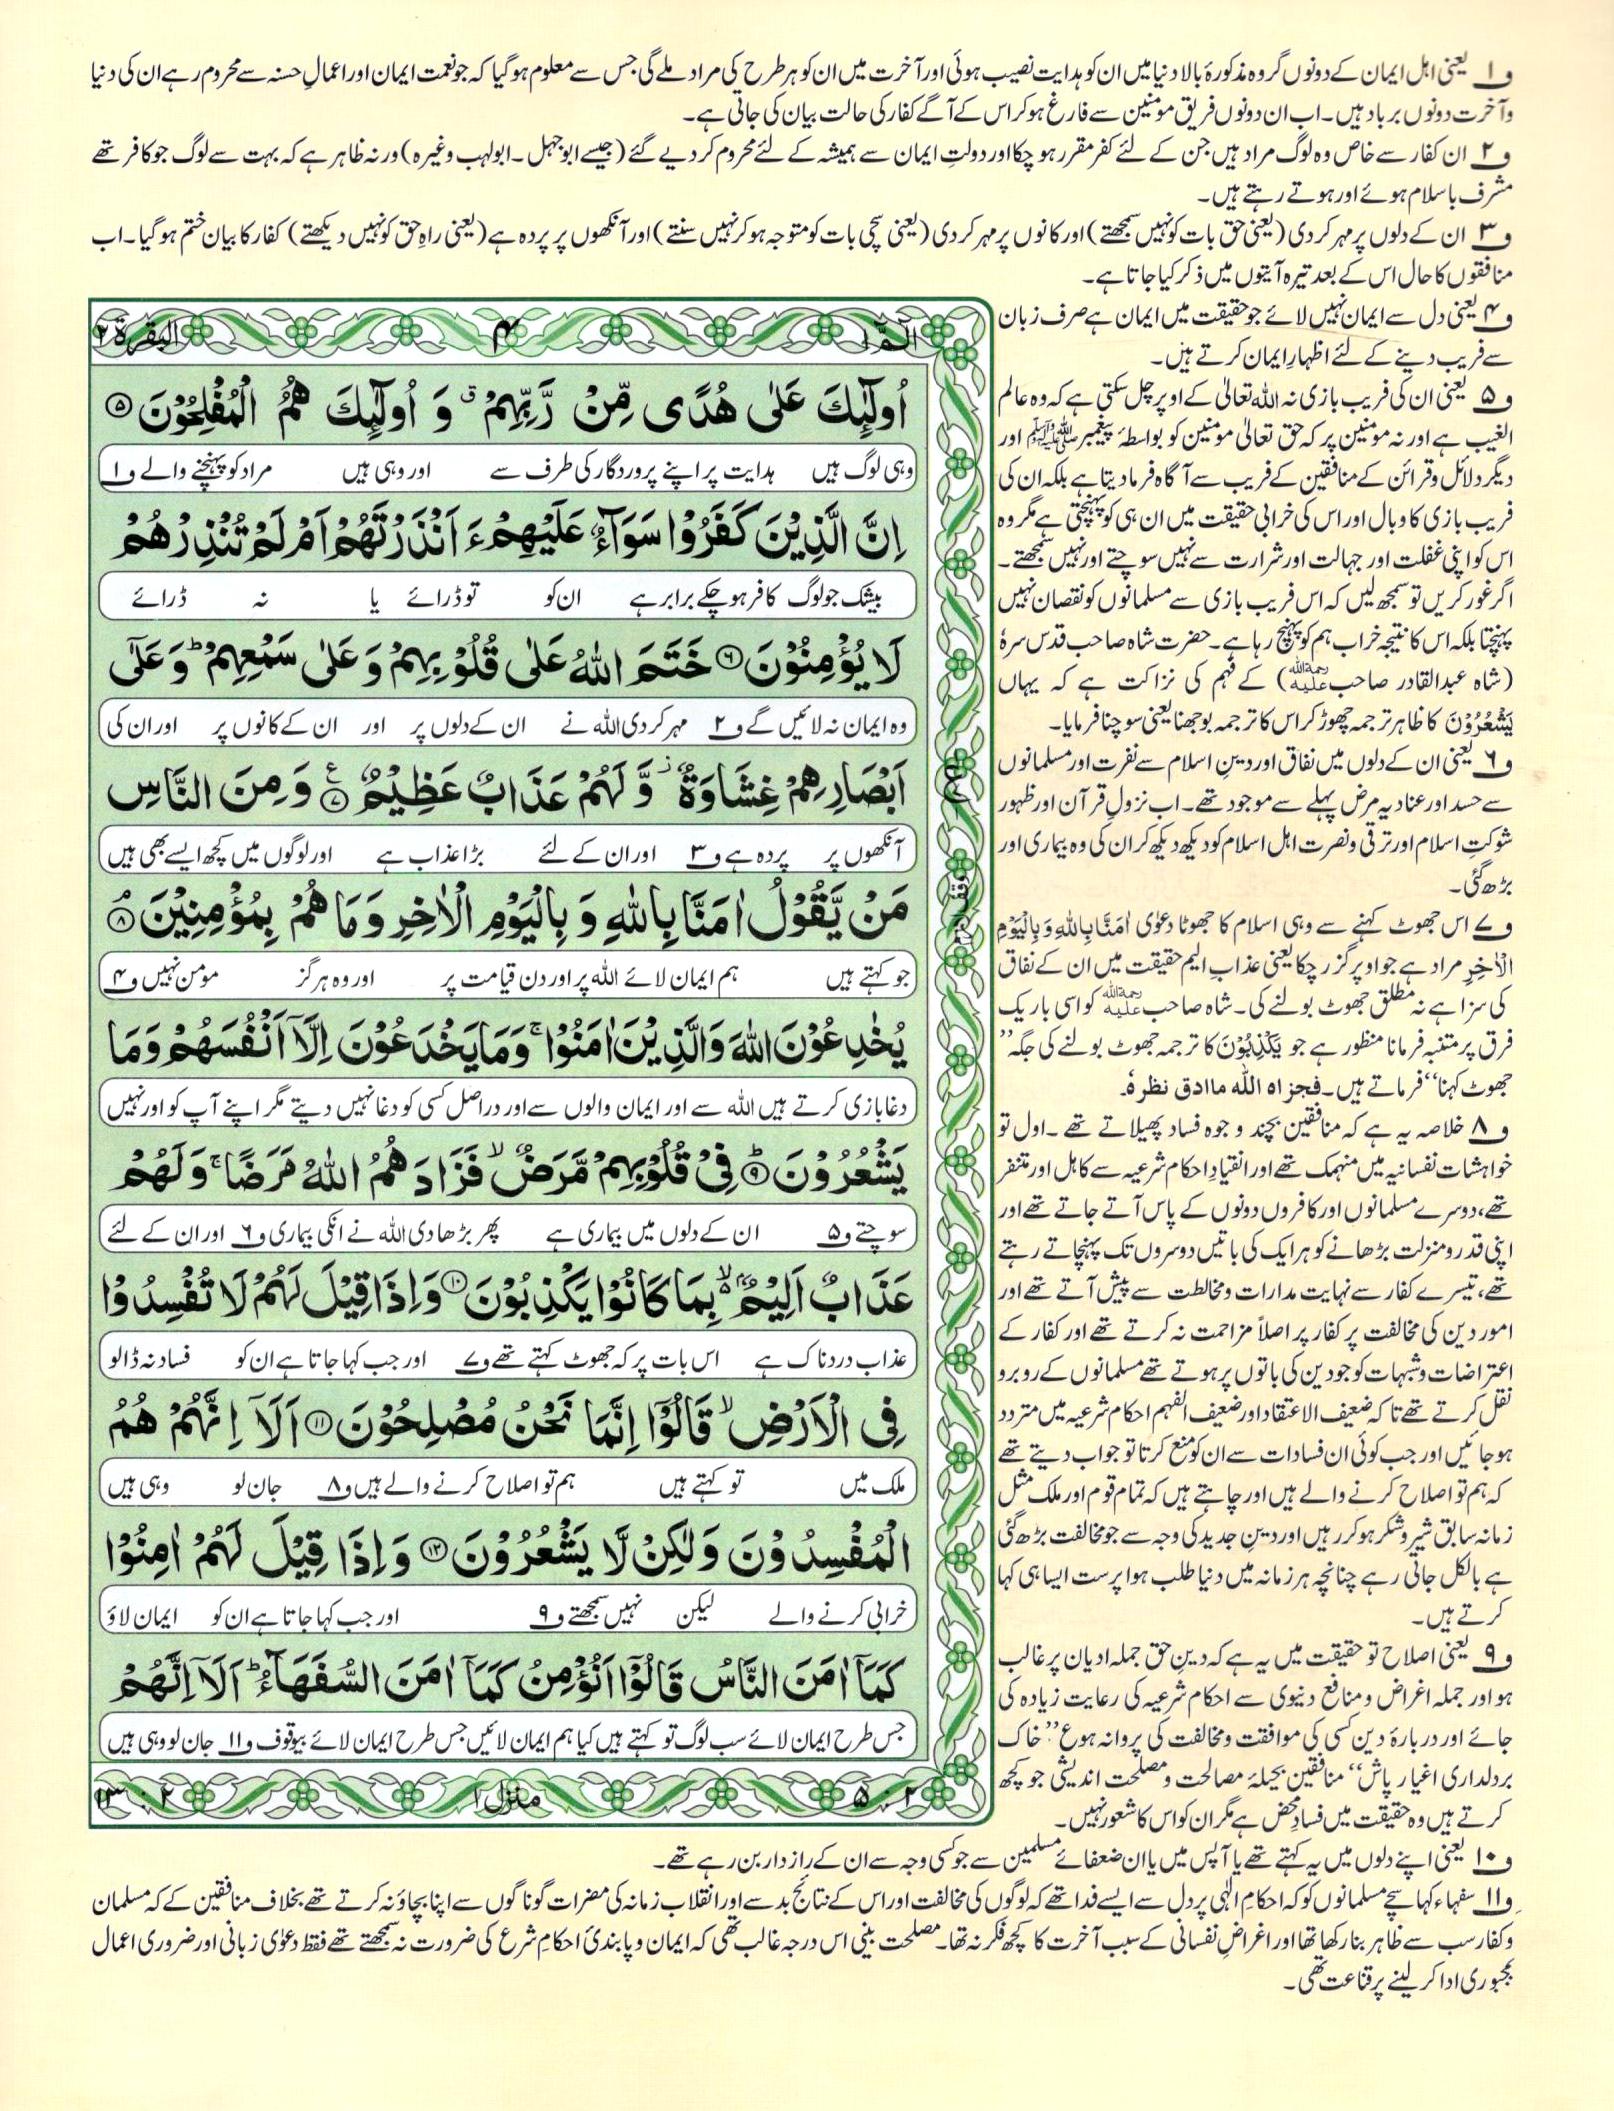 ف۱ یعنی اہل ایمان کے دونوں گروہ مذکورۂ بالا دنیا میں ان کو ہدایت نصیب ہوئی اور آخرت میں ان کو ہر طرح کی مراد ملے گی جس سے معلوم ہوگیا کہ جو نعمت ایمان اور اعمالِ حسنہ سے محروم رہے ان کی دنیا
و آخرت دونوں برباد ہیں۔ اب ان دونوں فریق مومنین سے فارغ ہوکر اس کے آگے کفار کی حالت بیان کی جاتی ہے۔
ف۲ ان کفار سے خاص وہ لوگ مراد ہیں جن کے لئے کفر مقرر ہوچکا اور دولتِ ایمان سے ہمیشہ کے لئے محروم کر دیے گئے (جیسے ابوجہل۔ ابولہب وغیرہ) ورنہ ظاہر ہے کہ بہت سے لوگ جو کافر تھے
مشرف باسلام ہوئے اور ہوتے رہتے ہیں۔
ف۳ ان کے دلوں پر مہر کردی (یعنی حق بات کو نہیں سمجھتے) اور کانوں پر مہر کردی (یعنی سچی بات کو متوجہ ہوکر نہیں سنتے) اور آنکھوں پر پردہ ہے (یعنی راہِ حق کو نہیں دیکھتے) کفار کا بیان ختم ہوگیا۔ اب
منافقوں کا حال اس کے بعد تیرہ آیتوں میں ذکر کیا جاتا ہے۔
ف۴ یعنی دل سے ایمان نہیں لائے جو حقیقت میں ایمان ہے صرف زبان
سے فریب دینے کے لئے اظہارِ ایمان کرتے ہیں۔
ف۵ یعنی ان کی فریب بازی نہ اللہ تعالیٰ کے اوپر چل سکتی ہے کہ وہ عالم
الغیب ہے اور نہ مومنین پر کہ حق تعالیٰ مومنین کو بواسطۂ پیغمبر ﷺ اور
دیگر دلائل و قرائن کے منافقین کے فریب سے آگاہ فرما دیتا ہے بلکہ ان کی
فریب بازی کا وبال اور اس کی خرابی حقیقت میں ان ہی کو پہنچتی ہے مگر وہ
اس کو اپنی غفلت اور جہالت اور شرارت سے نہیں سوچتے اور نہیں سمجھتے۔
اگر غور کریں تو سمجھ لیں کہ اس فریب بازی سے مسلمانوں کو نقصان نہیں
پہنچتا بلکہ اس کا نتیجہ خراب ہم کو پہنچ رہا ہے۔ حضرت شاہ صاحب قدس سرہٗ
(شاہ عبدالقادر صاحب رحمۃ اللہ علیہ) کے فہم کی نزاکت ہے کہ یہاں
یَشْعُرُوْنَ کا ظاہر ترجمہ چھوڑ کر اس کا ترجمہ بوجھنا یعنی سوچنا فرمایا۔
ف۶ یعنی ان کے دلوں میں نفاق اور دینِ اسلام سے نفرت اور مسلمانوں
سے حسد اور عناد یہ مرض پہلے سے موجود تھے۔ اب نزولِ قرآن اور ظہور
شوکتِ اسلام اور ترقی و نصرت اہل اسلام کو دیکھ دیکھ کر ان کی وہ بیماری اور
بڑھ گئی۔
ف۷ اس جھوٹ کہنے سے وہی اسلام کا جھوٹا دعوٰی اٰمَنَّا بِاللّٰهِ وَ بِالْیَوْمِ
الْاٰخِرِ مراد ہے جو اوپر گزر چکا یعنی عذابِ الیم حقیقت میں ان کے نفاق
کی سزا ہے نہ مطلق جھوٹ بولنے کی۔ شاہ صاحب رحمۃ اللہ علیہ کو اسی باریک
فرق پر متنبہ فرمانا منظور ہے جو یَکْذِبُوْنَ کا ترجمہ جھوٹ بولنے کی جگہ ”
جھوٹ کہنا“ فرماتے ہیں۔ فجزاہ اللّٰہ ماادق نظرہٗ۔
ف۸ خلاصہ یہ ہے کہ منافقین بچند وجوہ فساد پھیلاتے تھے۔ اول تو
خواہشات نفسانیہ میں منہمک تھے اور انقیادِ احکام شرعیہ سے کاہل اور متنفر
تھے، دوسرے مسلمانوں اور کافروں دونوں کے پاس آتے جاتے تھے اور
اپنی قدر و منزلت بڑھانے کو ہر ایک کی باتیں دوسروں تک پہنچاتے رہتے
تھے، تیسرے کفار سے نہایت مدارات و مخالطت سے پیش آتے تھے اور
امور دین کی مخالفت پر کفار پر اصلاً مزاحمت نہ کرتے تھے اور کفار کے
اعتراضات و شبہات کو جو دین کی باتوں پر ہوتے تھے مسلمانوں کے روبرو
نقل کرتے تھے تاکہ ضعیف الاعتقاد اور ضعیف الفہم احکام شرعیہ میں متردد
ہوجائیں اور جب کوئی ان فسادات سے ان کو منع کرتا تو جواب دیتے تھے
کہ ہم تو اصلاح کرنے والے ہیں اور چاہتے ہیں کہ تمام قوم اور ملک مثل
زمانہ سابق شیر و شکر ہوکر رہیں اور دینِ جدید کی وجہ سے جو مخالفت بڑھ گئی
ہے بالکل جاتی رہے چنانچہ ہر زمانہ میں دنیا طلب ہوا پرست ایسا ہی کہا
کرتے ہیں۔
ف۹ یعنی اصلاح تو حقیقت میں یہ ہے کہ دینِ حق جملہ ادیان پر غالب
ہو اور جملہ اغراض و منافع دنیوی سے احکام شرعیہ کی رعایت زیادہ کی
جائے اور دربارۂ دین کسی کی موافقت و مخالفت کی پروا نہ ہو ع ”خاک
بردلداری اغیار پاش“ منافقین بحیلۂ مصالحت و مصلحت اندیشی جو کچھ
کرتے ہیں وہ حقیقت میں فسادِ محض ہے مگر ان کو اس کا شعور نہیں۔
الٓمّٓ ۱
۴
البقرة ۲
اُولٰٓئِكَ عَلٰی هُدًی مِّنْ رَّبِّهِمْ ۗ وَ اُولٰٓئِكَ هُمُ الْمُفْلِحُوْنَ ۵
وہی لوگ ہیں ہدایت پر اپنے پروردگار کی طرف سے اور وہی ہیں مراد کو پہنچنے والے ف۱
اِنَّ الَّذِیْنَ كَفَرُوْا سَوَآءٌ عَلَیْهِمْ ءَاَنْذَرْتَهُمْ اَمْ لَمْ تُنْذِرْهُمْ
بیشک جو لوگ کافر ہوچکے برابر ہے ان کو تو ڈرائے یا نہ ڈرائے
لَا یُؤْمِنُوْنَ ۶ خَتَمَ اللّٰهُ عَلٰی قُلُوْبِهِمْ وَ عَلٰی سَمْعِهِمْ ؕ وَ عَلٰۤی
وہ ایمان نہ لائیں گے ف۲ مہر کردی اللہ نے ان کے دلوں پر اور ان کے کانوں پر اور ان کی
اَبْصَارِهِمْ غِشَاوَةٌ ؗ وَّ لَهُمْ عَذَابٌ عَظِیْمٌ ۷ ع وَ مِنَ النَّاسِ
آنکھوں پر پردہ ہے ف۳ اور ان کے لئے بڑا عذاب ہے اور لوگوں میں کچھ ایسے بھی ہیں
مَنْ یَّقُوْلُ اٰمَنَّا بِاللّٰهِ وَ بِالْیَوْمِ الْاٰخِرِ وَ مَا هُمْ بِمُؤْمِنِیْنَ ۘ ۸
جو کہتے ہیں ہم ایمان لائے اللہ پر اور دن قیامت پر اور وہ ہرگز مؤمن نہیں ف۴
یُخٰدِعُوْنَ اللّٰهَ وَ الَّذِیْنَ اٰمَنُوْا ۚ وَ مَا یَخْدَعُوْنَ اِلَّاۤ اَنْفُسَهُمْ وَ مَا
دغابازی کرتے ہیں اللہ سے اور ایمان والوں سے اور دراصل کسی کو دغا نہیں دیتے مگر اپنے آپ کو اور نہیں
یَشْعُرُوْنَ ؕ ۹ فِیْ قُلُوْبِهِمْ مَّرَضٌ ۙ فَزَادَهُمُ اللّٰهُ مَرَضًا ۚ وَ لَهُمْ
سوچتے ف۵ ان کے دلوں میں بیماری ہے پھر بڑھا دی اللہ نے انکی بیماری ف۶ اور ان کے لئے
عَذَابٌ اَلِیْمٌۢ ۙ بِمَا كَانُوْا یَكْذِبُوْنَ ۱۰ وَ اِذَا قِیْلَ لَهُمْ لَا تُفْسِدُوْا
عذاب دردناک ہے اس بات پر کہ جھوٹ کہتے تھے ف۷ اور جب کہا جاتا ہے ان کو فساد نہ ڈالو
فِی الْاَرْضِ ۙ قَالُوْۤا اِنَّمَا نَحْنُ مُصْلِحُوْنَ ۱۱ اَلَاۤ اِنَّهُمْ هُمُ
ملک میں تو کہتے ہیں ہم تو اصلاح کرنے والے ہیں ف۸ جان لو وہی ہیں
الْمُفْسِدُوْنَ وَ لٰكِنْ لَّا یَشْعُرُوْنَ ۱۲ وَ اِذَا قِیْلَ لَهُمْ اٰمِنُوْا
خرابی کرنے والے لیکن نہیں سمجھتے ف۹ اور جب کہا جاتا ہے ان کو ایمان لاؤ
كَمَاۤ اٰمَنَ النَّاسُ قَالُوْۤا اَنُؤْمِنُ كَمَاۤ اٰمَنَ السُّفَهَآءُ ؕ اَلَاۤ اِنَّهُمْ
جس طرح ایمان لائے سب لوگ تو کہتے ہیں کیا ہم ایمان لائیں جس طرح ایمان لائے بیوقوف ف۱۱ جان لو وہی ہیں
۲ : ۵
منزل ۱
۲ : ۱۳
ف۱۰ یعنی اپنے دلوں میں یہ کہتے تھے یا آپس میں یا ان ضعفائے مسلمین سے جو کسی وجہ سے ان کے رازدار بن رہے تھے۔
ف۱۱ سفہاء کہا سچے مسلمانوں کو کہ احکامِ الٰہی پر دل سے ایسے فدا تھے کہ لوگوں کی مخالفت اور اس کے نتائج بد سے اور انقلاب زمانہ کی مضرات گوناگوں سے اپنا بچاؤ نہ کرتے تھے بخلاف منافقین کے کہ مسلمان
و کفار سب سے ظاہر بنا رکھا تھا اور اغراضِ نفسانی کے سبب آخرت کا کچھ فکر نہ تھا۔ مصلحت بینی اس درجہ غالب تھی کہ ایمان و پابندیٔ احکامِ شرع کی ضرورت نہ سمجھتے تھے فقط دعوٰی زبانی اور ضروری اعمال
بمجبوری ادا کر لینے پر قناعت تھی۔